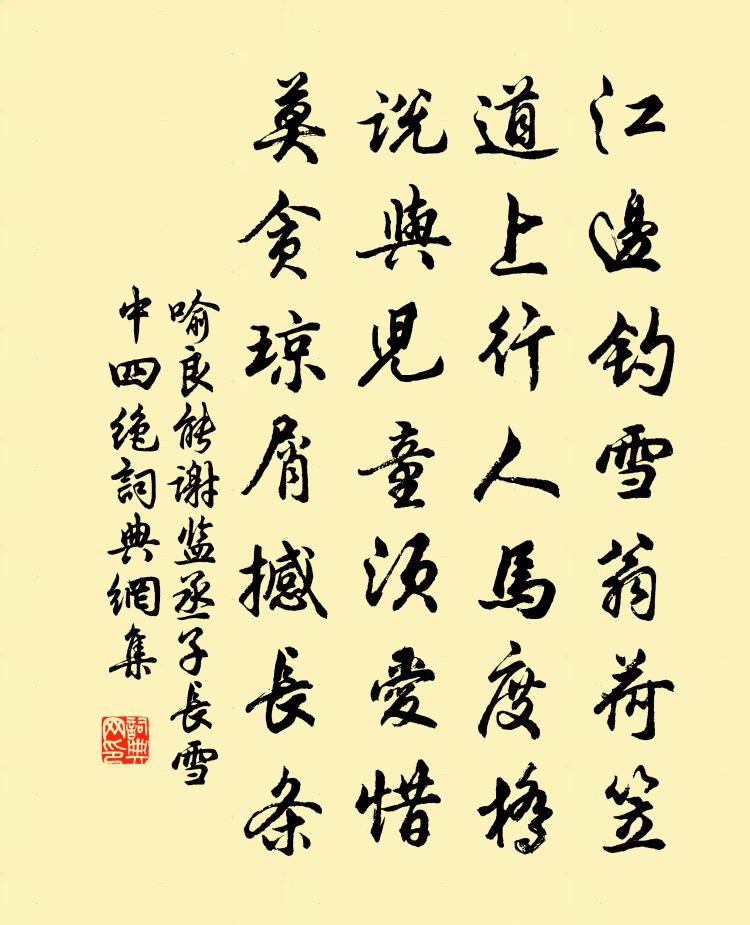 江邊釣雪翁荷笠
道上行人馬度橋
説與児童須愛惜
莫貪琼屑撼長条
喻良能谢监丞子長雪
中四绝詞典網集
詞典
网印